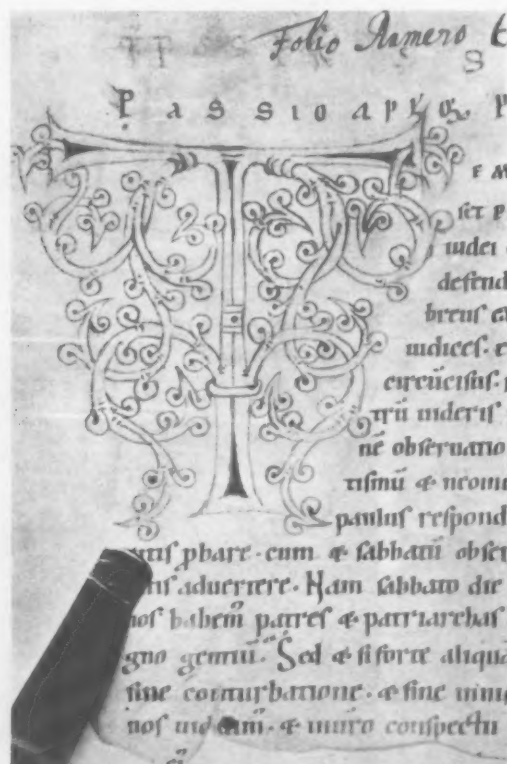 Folio Ramero
S
Passio apło P
T
E M
set P
iudei
defend
breus ex
iudices. e
circūcisus.
trū uideris
nē obseruatio
tismū & neome
paulus respond
phare. cum & sabbatū obser
aduertere. Nam sabbato die
nos habem̄ patres & patriarchas
gno gentiū. Sed & si forte aliqua
sine conturbatione. & sine nimi
nos uidēm̄. & muro conspectu